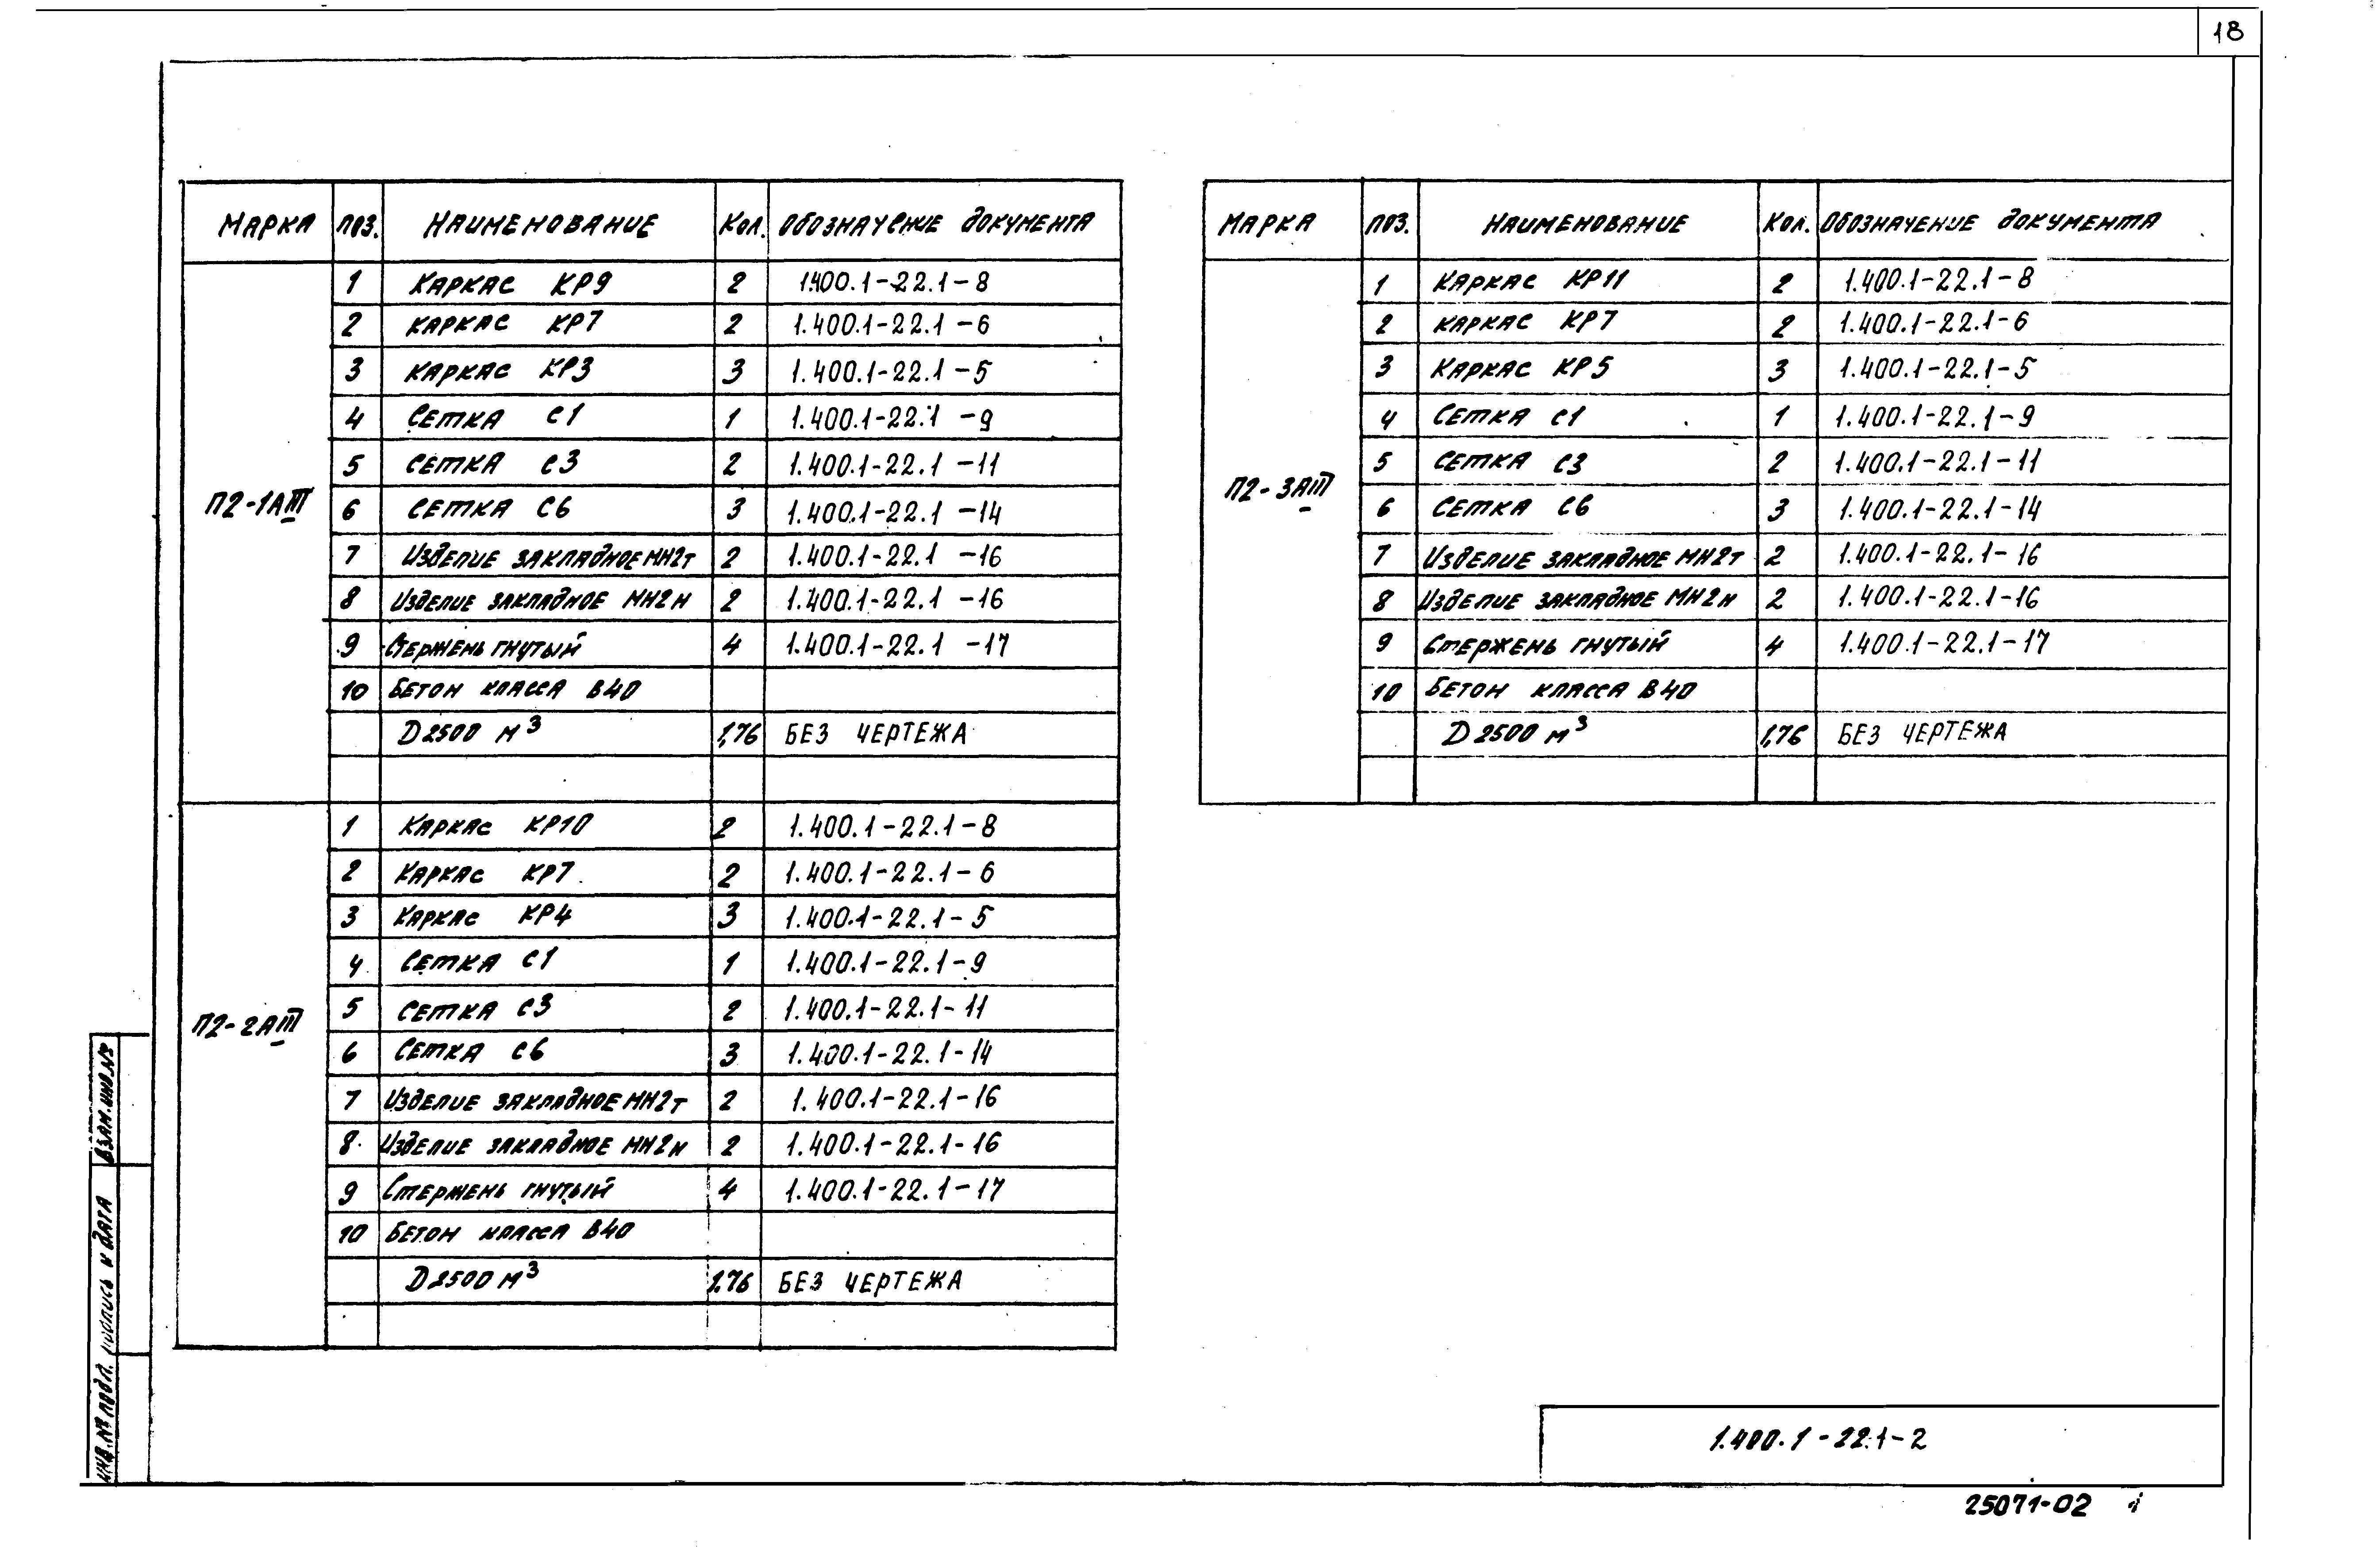 18
МАРКА ПОЗ. НАИМЕНОВАНИЕ КОЛ. ОБОЗНАЧЕНИЕ ДОКУМЕНТА
П2-1АIII
1 КАРКАС КР9 2 1.400.1-22.1-8
2 КАРКАС КР7 2 1.400.1-22.1-6
3 КАРКАС КР3 3 1.400.1-22.1-5
4 СЕТКА С1 1 1.400.1-22.1-9
5 СЕТКА С3 2 1.400.1-22.1-11
6 СЕТКА С6 3 1.400.1-22.1-14
7 ИЗДЕЛИЕ ЗАКЛАДНОЕ МН2т 2 1.400.1-22.1-16
8 ИЗДЕЛИЕ ЗАКЛАДНОЕ МН2н 2 1.400.1-22.1-16
9 СТЕРЖЕНЬ ГНУТЫЙ 4 1.400.1-22.1-17
10 БЕТОН КЛАССА В40
D2500 м³ 1,76 БЕЗ ЧЕРТЕЖА
П2-2АIII
1 КАРКАС КР10 2 1.400.1-22.1-8
2 КАРКАС КР7 2 1.400.1-22.1-6
3 КАРКАС КР4 3 1.400.1-22.1-5
4 СЕТКА С1 1 1.400.1-22.1-9
5 СЕТКА С3 2 1.400.1-22.1-11
6 СЕТКА С6 3 1.400.1-22.1-14
7 ИЗДЕЛИЕ ЗАКЛАДНОЕ МН2т 2 1.400.1-22.1-16
8 ИЗДЕЛИЕ ЗАКЛАДНОЕ МН2н 2 1.400.1-22.1-16
9 СТЕРЖЕНЬ ГНУТЫЙ 4 1.400.1-22.1-17
10 БЕТОН КЛАССА В40
D2500 м³ 1,76 БЕЗ ЧЕРТЕЖА
МАРКА ПОЗ. НАИМЕНОВАНИЕ КОЛ. ОБОЗНАЧЕНИЕ ДОКУМЕНТА
П2-3АIII
1 КАРКАС КР11 2 1.400.1-22.1-8
2 КАРКАС КР7 2 1.400.1-22.1-6
3 КАРКАС КР5 3 1.400.1-22.1-5
4 СЕТКА С1 1 1.400.1-22.1-9
5 СЕТКА С3 2 1.400.1-22.1-11
6 СЕТКА С6 3 1.400.1-22.1-14
7 ИЗДЕЛИЕ ЗАКЛАДНОЕ МН2т 2 1.400.1-22.1-16
8 ИЗДЕЛИЕ ЗАКЛАДНОЕ МН2н 2 1.400.1-22.1-16
9 СТЕРЖЕНЬ ГНУТЫЙ 4 1.400.1-22.1-17
10 БЕТОН КЛАССА В40
D2500 м³ 1,76 БЕЗ ЧЕРТЕЖА
ИНВ.№ ПОДЛ. ПОДПИСЬ И ДАТА ВЗАМ.ИНВ.№
1.400.1-22.1-2
25071-02